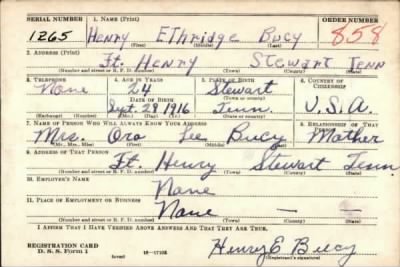 SERIAL NUMBER 1. NAME (Print) ORDER NUMBER
1265 Henry EThridge Bucy 858
(First) (Middle) (Last)
2. ADDRESS (Print)
Ft. Henry Stewart Tenn
(Number and street or R. F. D. number) (Town) (County) (State)
3. TELEPHONE 4. AGE IN YEARS 5. PLACE OF BIRTH 6. COUNTRY OF CITIZENSHIP
None 24 Stewart
DATE OF BIRTH (Town or county)
Sept. 28 1916 Tenn. U.S.A.
(Exchange) (Number) (Mo.) (Day) (Yr.) (State or country)
7. NAME OF PERSON WHO WILL ALWAYS KNOW YOUR ADDRESS 8. RELATIONSHIP OF THAT PERSON
Mrs. Ora Lee Bucy Mother
(Mr., Mrs., Miss) (First) (Middle) (Last)
9. ADDRESS OF THAT PERSON
Ft. Henry Stewart Tenn.
(Number and street or R. F. D. number) (Town) (County) (State)
10. EMPLOYER'S NAME
None
11. PLACE OF EMPLOYMENT OR BUSINESS
None — —
(Number and street or R. F. D. number) (Town) (County) (State)
I AFFIRM THAT I HAVE VERIFIED ABOVE ANSWERS AND THAT THEY ARE TRUE.
REGISTRATION CARD
D. S. S. Form 1 Henry E Bucy
(over) (Registrant's signature)